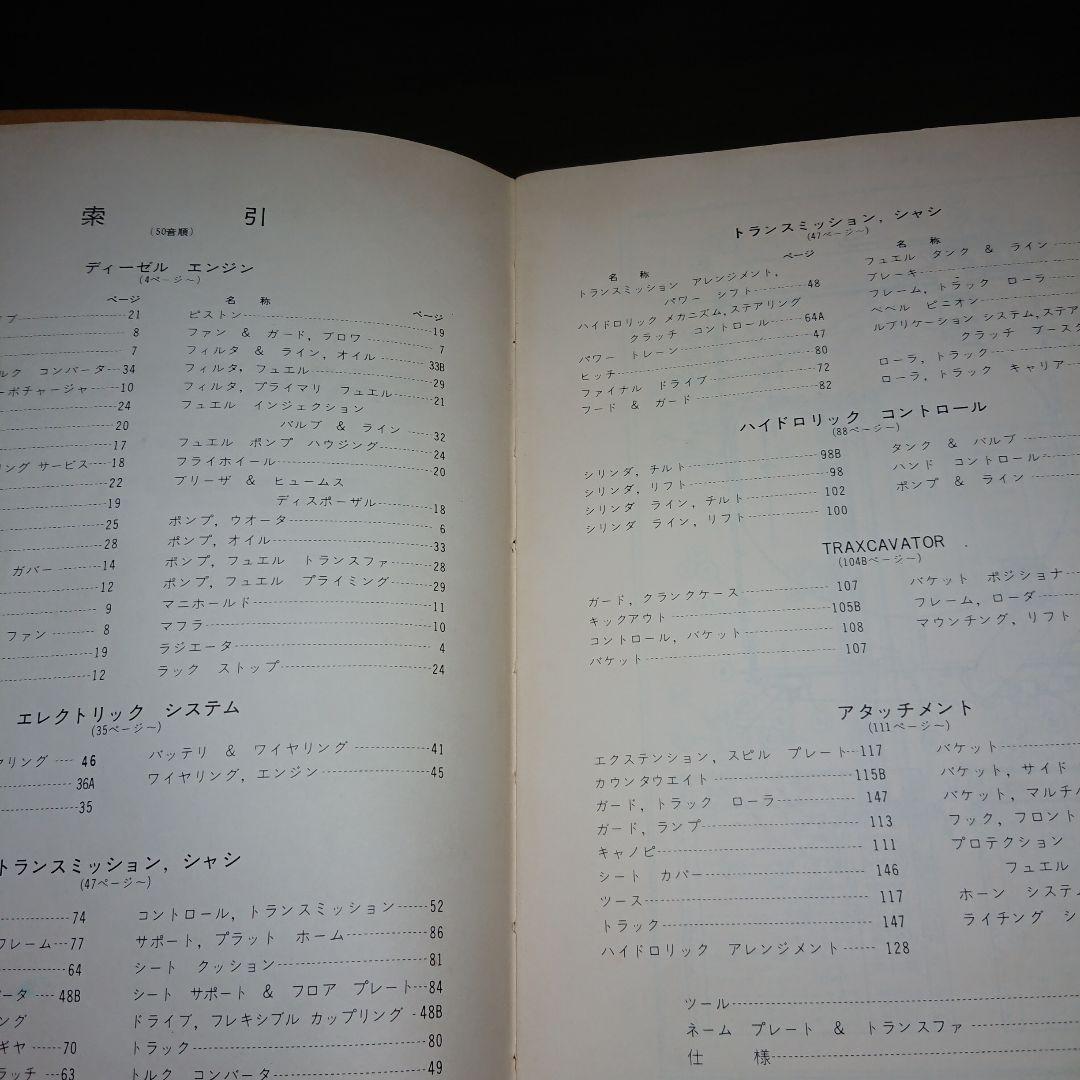 索 引
(50音順)
ディーゼル エンジン
(4ページ〜)
ページ
21
8
7
コンバータ 34
ーボチャージャ 10
24
20
17
リング サービス 18
22
19
25
28
ガバー 14
12
9
ファン 8
19
12
名 称 ページ
ピストン 19
ファン & ガード, ブロワ 7
フィルタ & ライン, オイル 33B
フィルタ, フュエル 29
フィルタ, プライマリ フュエル 21
フュエル インジェクション
バルブ & ライン 32
フュエル ポンプ ハウジング 24
フライホイール 20
ブリーザ & ヒュームス
ディスポーザル 18
ポンプ, ウオータ 6
ポンプ, オイル 33
ポンプ, フュエル トランスファ 28
ポンプ, フュエル プライミング 29
マニホールド 11
マフラ 10
ラジエータ 4
ラック ストップ 24
エレクトリック システム
(35ページ〜)
ヤリング 46
36A
35
バッテリ & ワイヤリング 41
ワイヤリング, エンジン 45
トランスミッション, シャシ
(47ページ〜)
74
フレーム 77
64
ータ 48B
ング
ギヤ 70
ラッチ 63
コントロール, トランスミッション 52
サポート, プラット ホーム 86
シート クッション 81
シート サポート & フロア プレート 84
ドライブ, フレキシブル カップリング 48B
トラック 80
トルク コンバータ 49
トランスミッション, シャシ
(47ページ〜)
名 称 ページ
トランスミッション アレンジメント,
パワー シフト 48
ハイドロリック メカニズム, ステアリング
クラッチ コントロール 64A
パワー トレーン 47
ヒッチ 80
ファイナル ドライブ 72
フード & ガード 82
名 称
フュエル タンク & ライン
ブレーキ
フレーム, トラック ローラ
ベベル ピニオン
ルブリケーション システム, ステア
クラッチ ブースタ
ローラ, トラック
ローラ, トラック キャリア
ハイドロリック コントロール
(88ページ〜)
シリンダ, チルト 98B
シリンダ, リフト 98
シリンダ ライン, チルト 102
シリンダ ライン, リフト 100
タンク & バルブ
ハンド コントロール
ポンプ & ライン
TRAXCAVATOR
(104Bページ〜)
ガード, クランクケース 107
キックアウト 105B
コントロール, バケット 108
バケット 107
バケット ポジショナ
フレーム, ローダ
マウンチング, リフト
アタッチメント
(111ページ〜)
エクステンション, スピル プレート 117
カウンタウエイト 115B
ガード, トラック ローラ 147
ガード, ランプ 113
キャノピ 111
シート カバー 146
ツース 117
トラック 147
ハイドロリック アレンジメント 128
バケット
バケット, サイド
バケット, マルチパ
フック, フロント
プロテクション
フュエル
ホーン システム
ライチング シ
ツール
ネーム プレート & トランスファ
仕 様